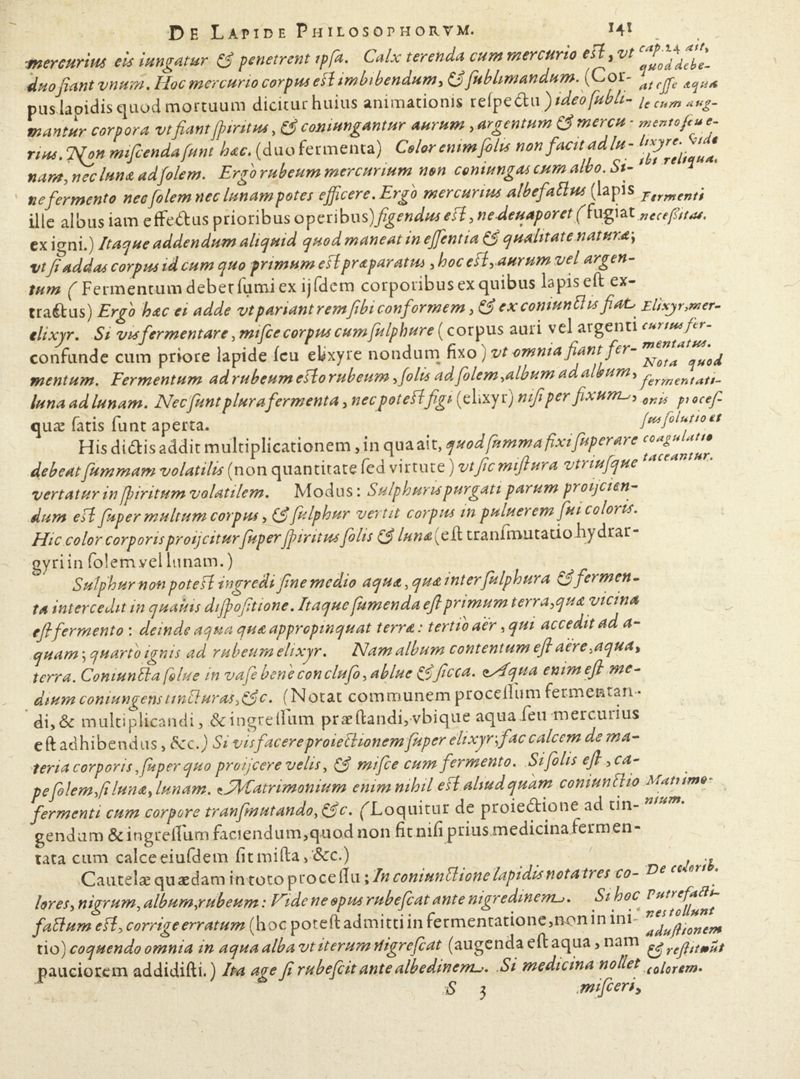 DE LAPIDE PHILOSOPHORVM. 141
mercurius eis iungatur & penetrent ipsa. Calx terenda cum mercurio est, vt
duo fiant vnum. Hoc mercurio corpus est imbibendum, & sublimandum. (Cor-
pus lapidis quod mortuum dicitur huius animationis respectu) ideo subli-
mantur corpora vt fiant spiritus, & coniungantur aurum, argentum & mercu-
rius. Non miscenda sunt hæc. (duo fermenta) Color enim solis non facit ad lu-
nam, nec lunæ ad solem. Ergò rubeum mercurium non coniungas cum albo. Si-
ne fermento nec solem nec lunam potes efficere. Ergo mercurius albefactus (lapis
ille albus iam effectus prioribus operibus) figendus est, ne deuaporet (fugiat
ex igni.) Itaque addendum aliquid quod maneat in essentia & qualitate naturæ;
vt si addas corpus id cum quo primum est præparatus, hoc est, aurum vel argen-
tum (Fermentum debet sumi ex ijsdem corporibus ex quibus lapis est ex-
tractus) Ergò hæc ei adde vt pariant rem sibi conformem, & ex coniunctis fiat
elixyr. Si vis fermentare, misce corpus cum sulphure (corpus auri vel argenti
confunde cum priore lapide seu elixyre nondum fixo) vt omnia fiant fer-
mentum. Fermentum ad rubeum esto rubeum, solis ad solem, album ad album,
luna ad lunam. Nec sunt plura fermenta, nec potest figi (elixyr) nisi per fixum,
quæ satis sunt aperta.
His dictis addit multiplicationem, in qua ait, quod summa fixi superare
debeat summam volatilis (non quantitate sed virtute) vt sic mistura vtriusque
vertatur in spiritum volatilem. Modus: Sulphuris purgati parum proijcien-
dum est super multum corpus, & sulphur vertit corpus in puluerem sui coloris.
Hic color corporis proijcitur super spiritus solis & lunæ (est transmutatio hydrar-
gyri in solem vel lunam.)
Sulphur non potest ingredi sine medio aqua, quæ inter sulphura & fermen-
ta intercedit in quauis dispositione. Itaque sumenda est primum terra, quæ vicina
est fermento: deinde aqua quæ appropinquat terræ: tertiò aër, qui accedit ad a-
quam; quartò ignis ad rubeum elixyr. Nam album contentum est aëre, aqua,
terra. Coniuncta solue in vase bene concluso, ablue & sicca. Aqua enim est me-
dium coniungens tincturas, &c. (Notat communem processum fermentan-
di, & multiplicandi, & ingressum præstandi, vbique aqua seu mercurius
est adhibendus, &c.) Si vis facere proiectionem super elixyr; fac calcem de ma-
teria corporis, super quo proijcere velis, & misce cum fermento. Si solis est, ca-
pe solem, si lunæ, lunam. Matrimonium enim nihil est aliud quàm coniunctio
fermenti cum corpore transmutando, &c. (Loquitur de proiectione ad tin-
gendum & ingressum faciendum, quod non fit nisi prius medicina fermen-
tata cum calce eiusdem sit mista, &c.)
Cautelæ quædam in toto processu; In coniunctione lapidis nota tres co-
lores, nigrum, album, rubeum: Vide ne opus rubescat ante nigredinem. Si hoc
factum est, corrige erratum (hoc potest admitti in fermentatione, non in ini-
tio) coquendo omnia in aqua alba vt iterum nigrescat (augenda est aqua, nam
pauciorem addidisti.) Ita age si rubescit ante albedinem. Si medicina nollet
S 3 misceri,
cap. 14 ait,
quod debe-
at esse aqua
le cum aug-
mento seu e-
lixyre. Vide
ibi reliqua.
Fermenti
necessitas.
Elixyr, mer-
curius fer-
mentatus.
Nota quod
fermentati-
onis process-
sus solutio et
coagulatio
taceantur.
Matrimo-
nium.
De colorib.
Putrefacti-
nes tollunt
adustionem
& restituũt
colorem.